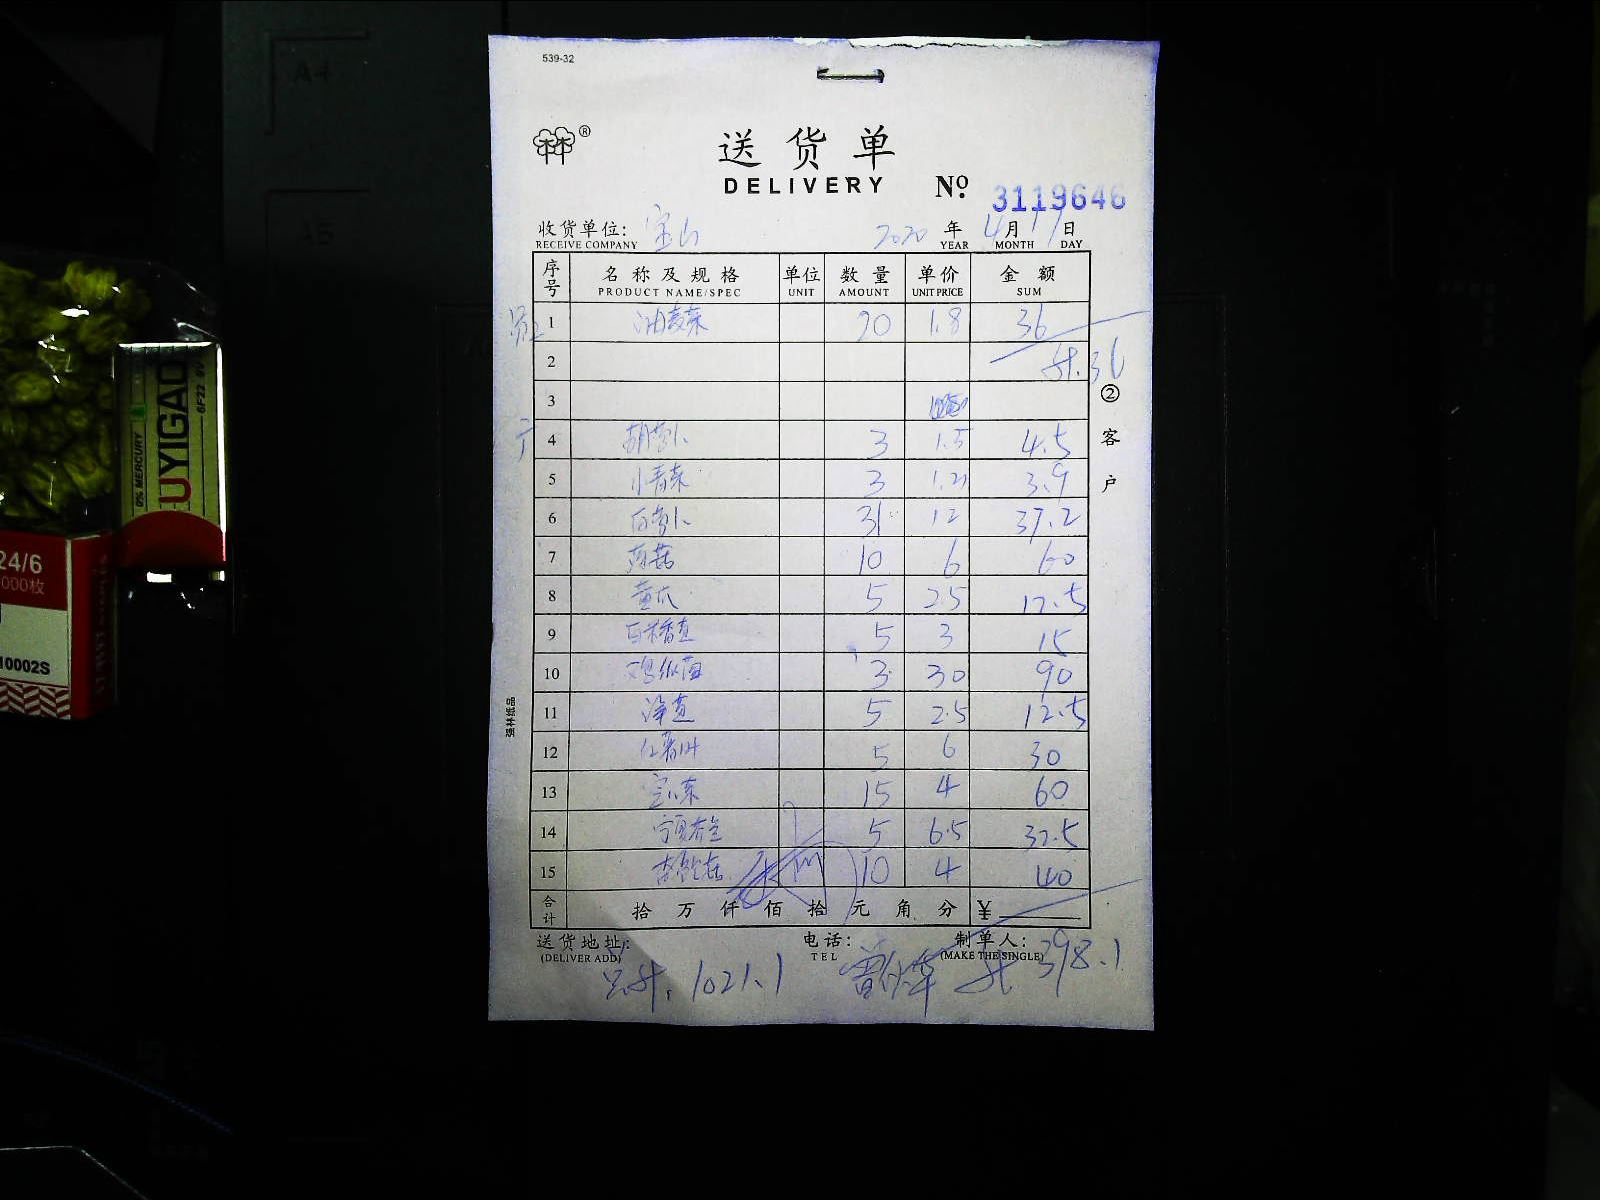 539-32
®
送货单
DELIVERY
No. 3119646
收货单位: 宝山 2020 年 4月 17日
RECEIVE COMPANY YEAR MONTH DAY
序号 名称及规格 单位 数量 单价 金额
PRODUCT NAME/SPEC UNIT AMOUNT UNIT PRICE SUM
1 油麦菜 20 1.8 36
2 计.36
3
4 胡萝卜 3 1.5 4.5
5 小青菜 3 3.9
6 白萝卜 31 12 37.2
7 蘑菇 10 6 60
8 黄瓜 5 2.5 12.5
9 5 3 15
10 3 30 90
11 5 2.5 12.5
12 5 6 30
13 15 4 60
14 5 6.5 32.5
15 10 4 40
合计 拾 万 仟 佰 拾 元 角 分 ¥
② 客户
强林纸品
送货地址: 电话: 制单人:
(DELIVER ADD) TEL (MAKE THE SINGLE)
总计. 1021.1 计 398.1
A4
A5
0% MERCURY
UYIGAO
6F22 9V
24/6
000枚
10002S